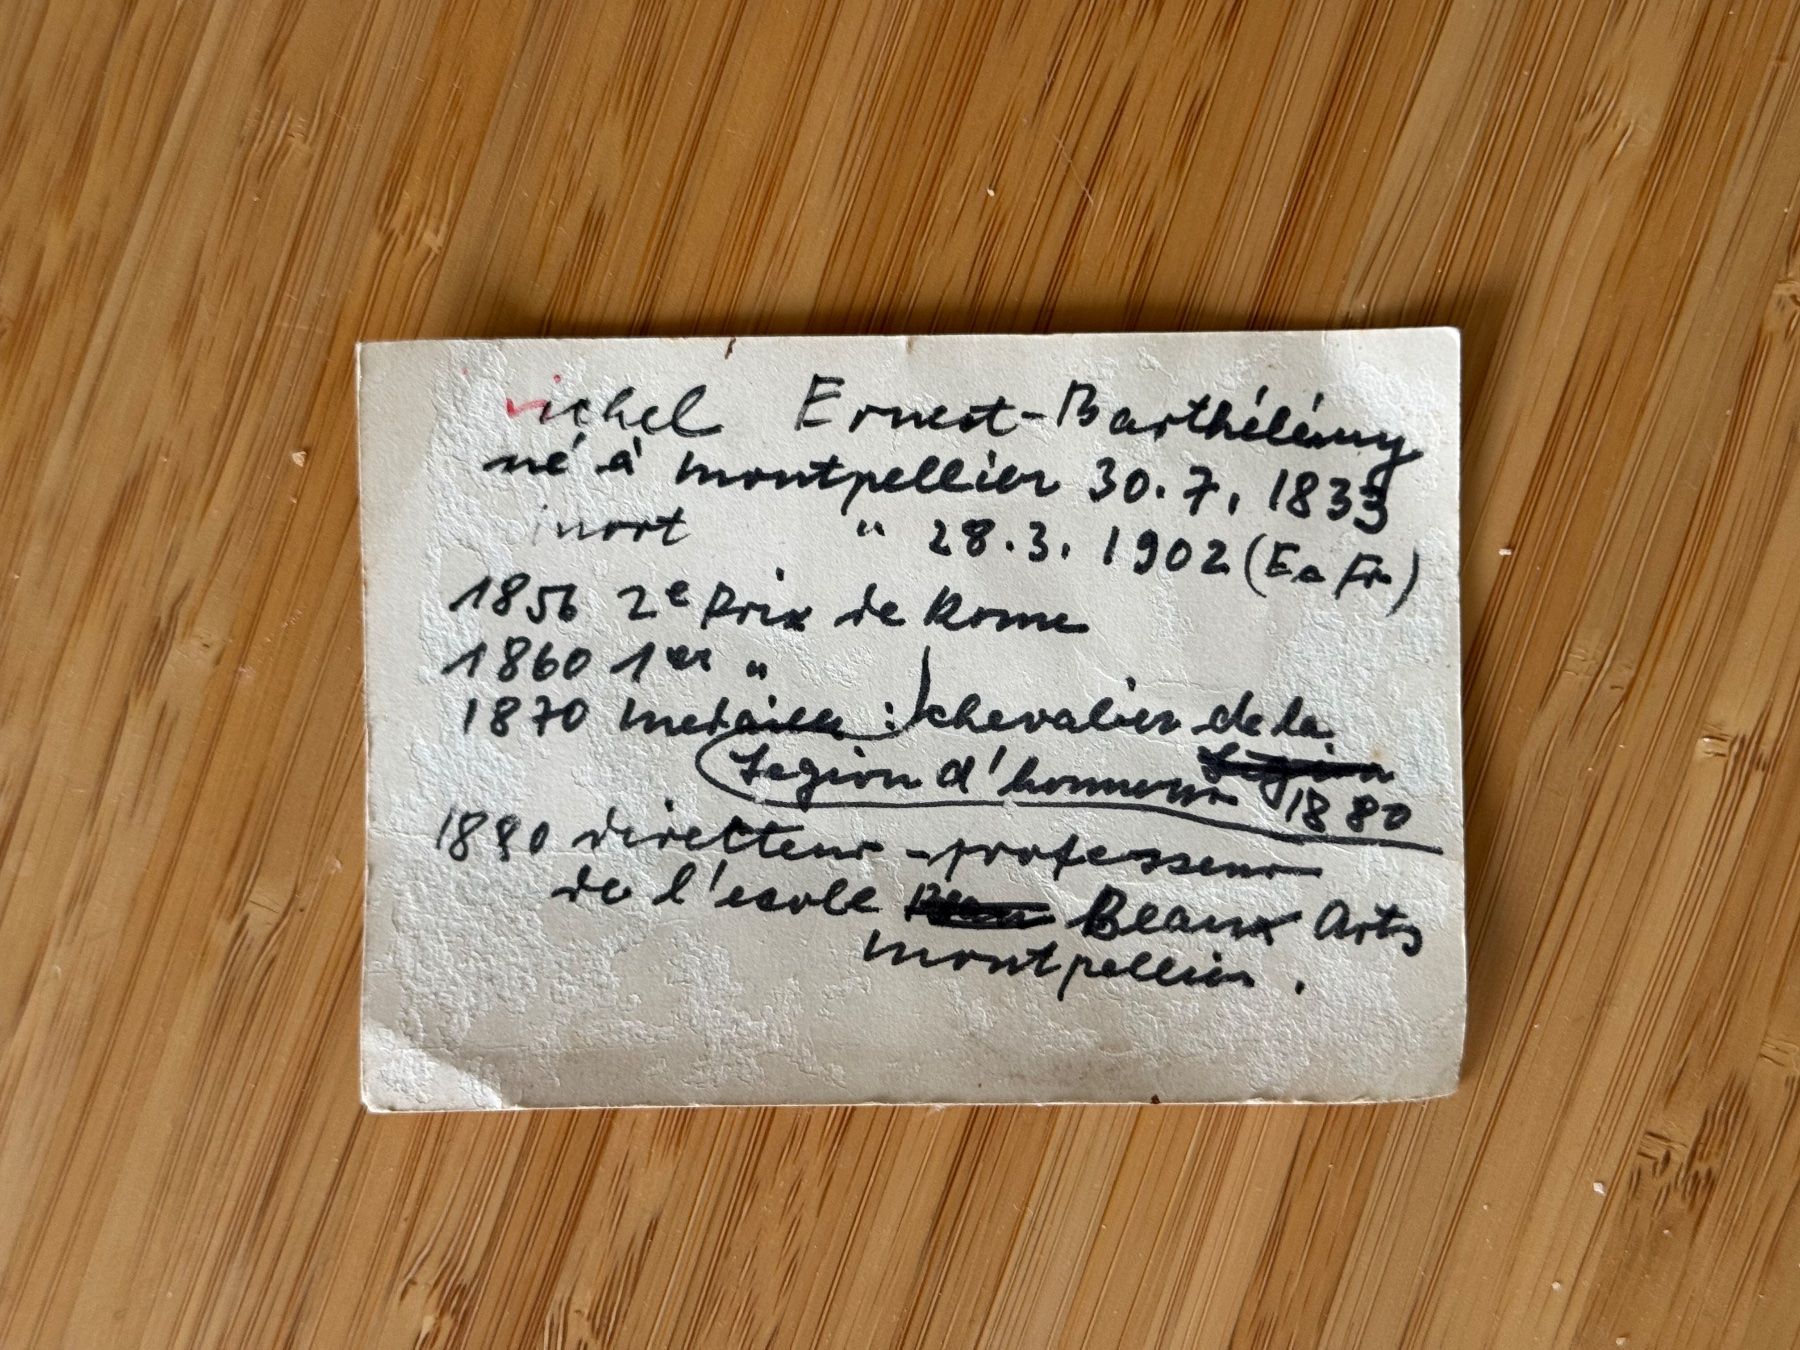 Michel Ernest-Barthélémy
né à Montpellier 30.7.1833
mort " 28.3.1902
1856 2e Prix de Rome
1860 1er "
1870 medaille : chevalier de la
Legion d'honneur 1880
directeur-professeur
de l'ecole Beaux Arts
Montpellier.